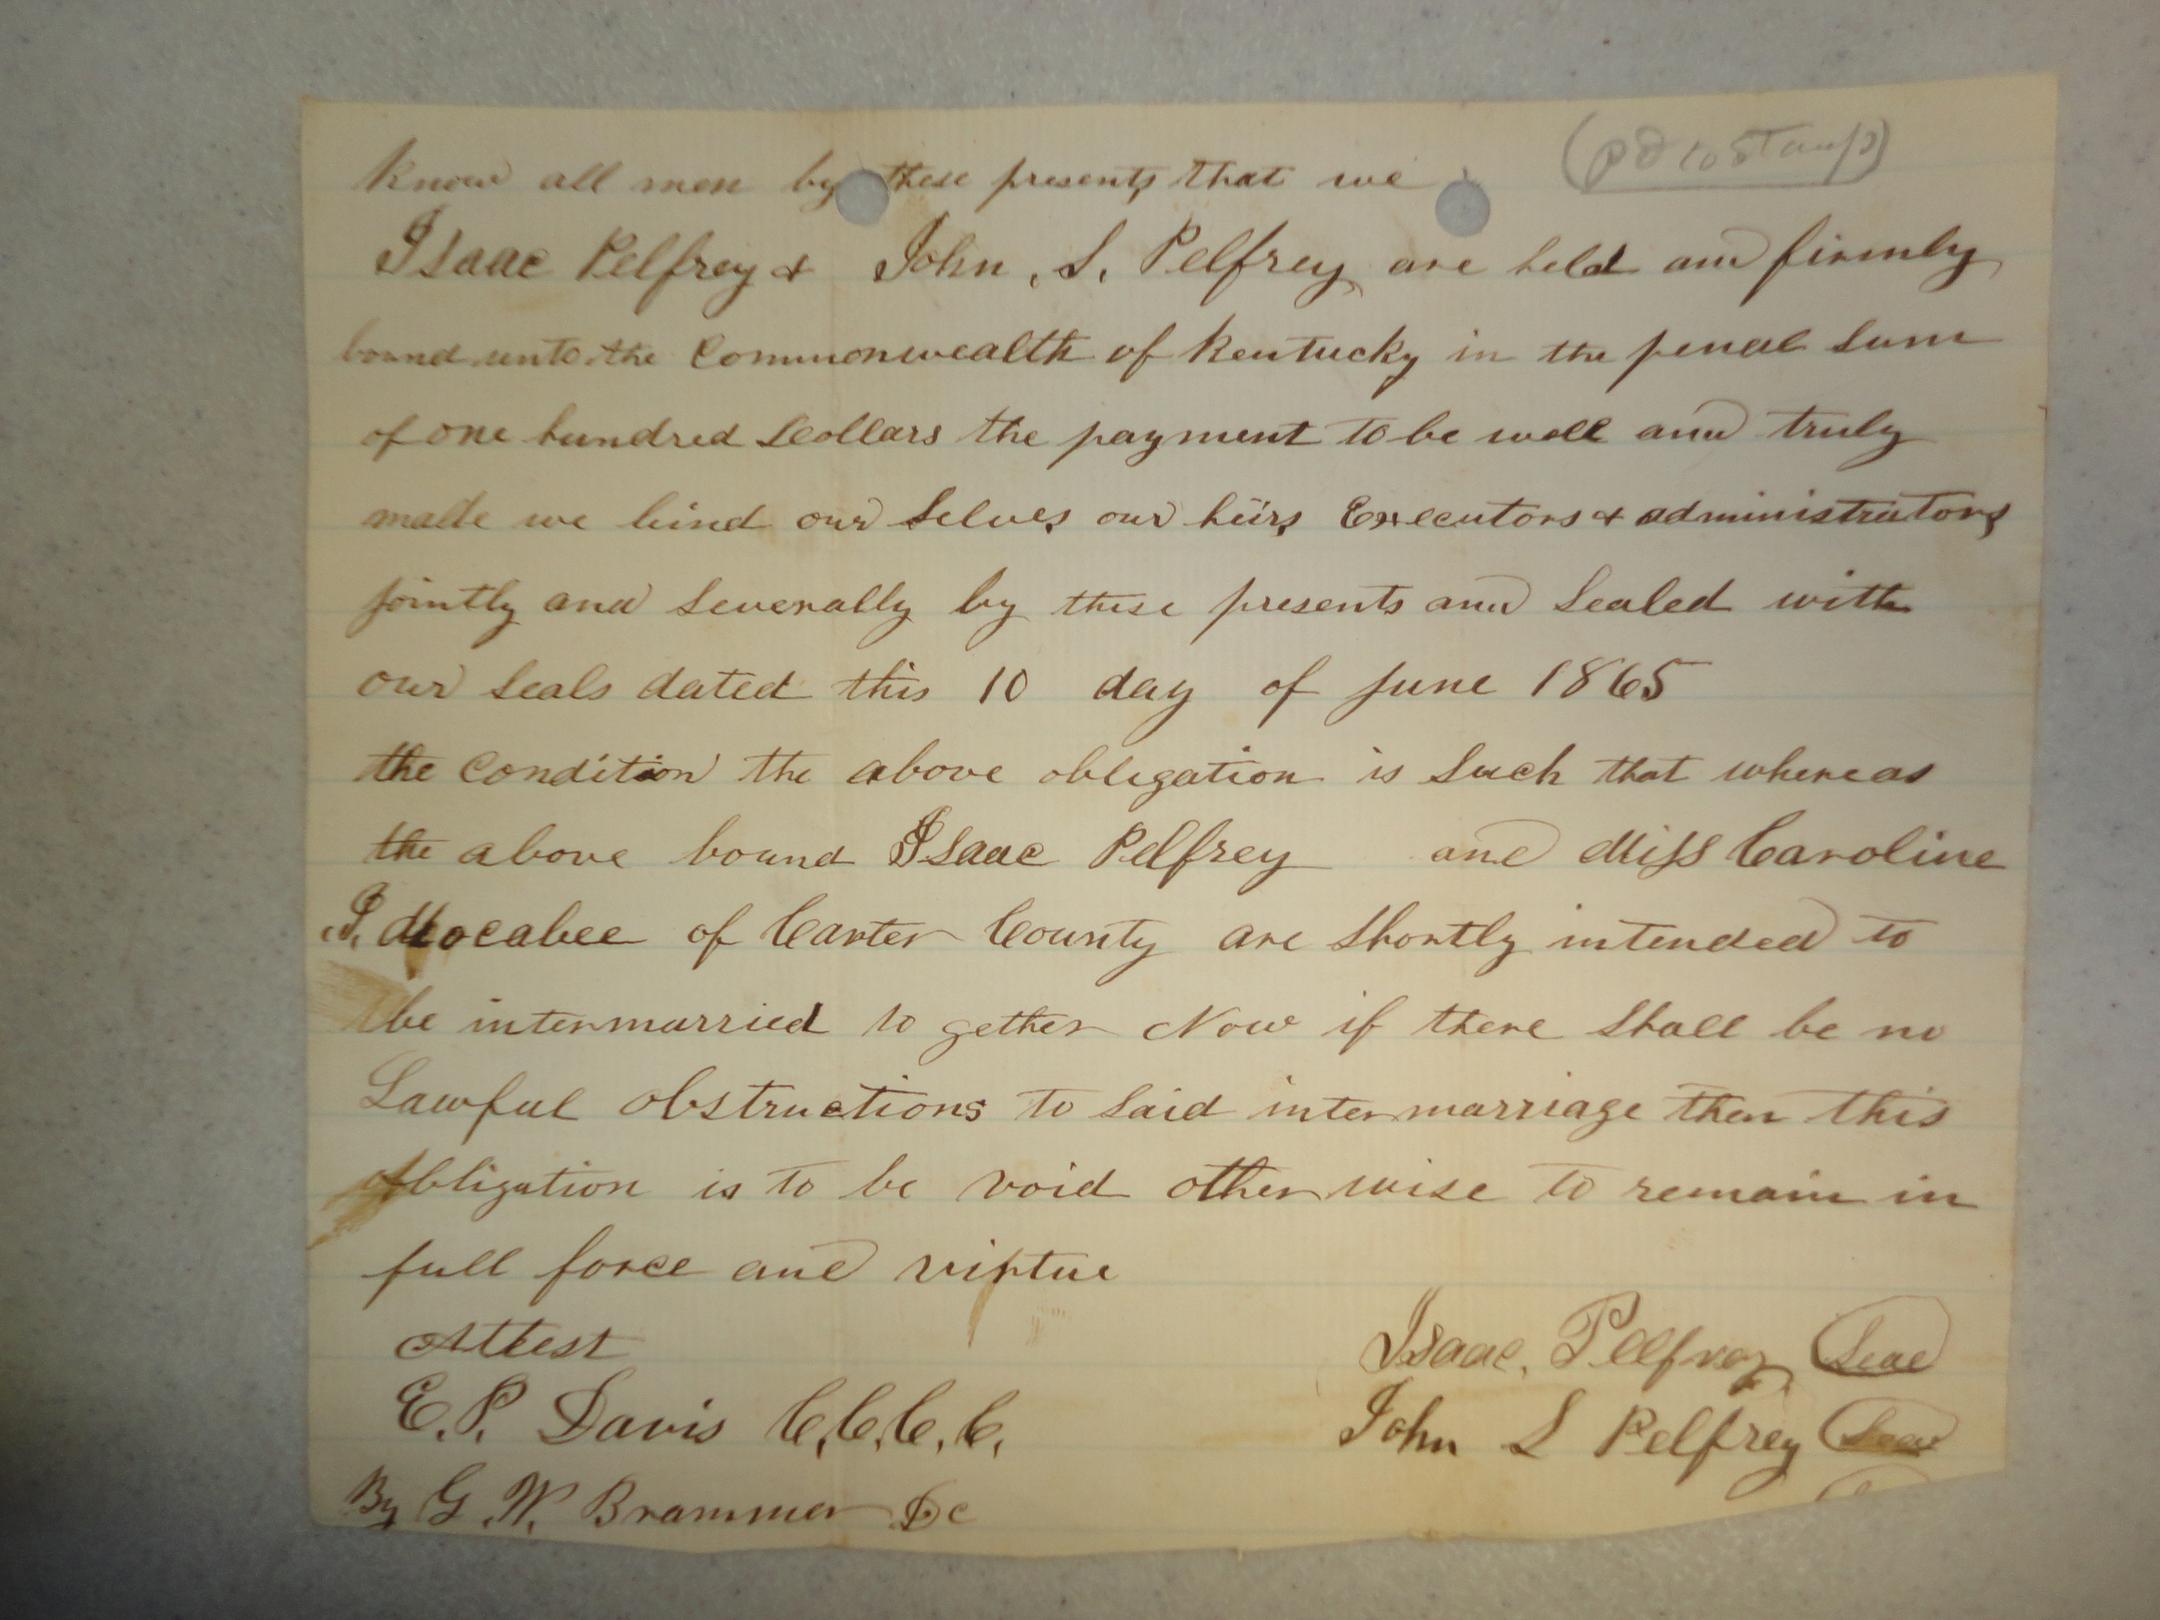 (pd to stamp)
know all men by these presents that we
Isaac Pelfrey & John, S, Pelfrey are held and firmly
bound unto the Commonwealth of Kentucky in the penal sum
of one hundred Dollars the payment to be well and truly
made we bind our selves, our heirs, Executors & administrators,
jointly and severally by these presents and sealed with
our seals dated this 10 day of June 1865
the condition the above obligation is such that whereas
the above bound Isaac Pelfrey and Miss Caroline
Mocabee of Carter County are shortly intended to
be intermarried to gether Now if there shall be no
Lawful obstructions to said intermarriage then this
obligation is to be void other wise to remain in
full force and virtue
Attest
Isaac, Pelfrey Seal
E.P. Davis C,C,C,C,
John S Pelfrey Seal
By G.W. Brammer Dc